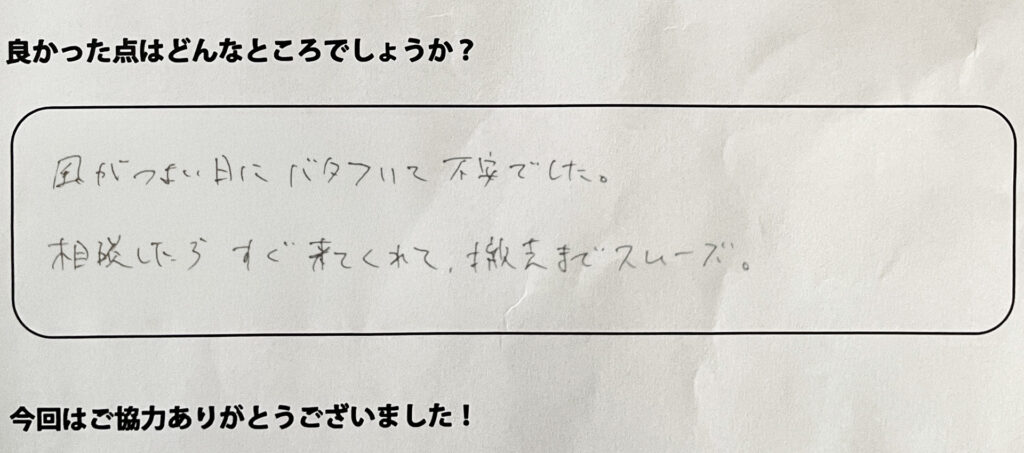 良かった点はどんなところでしょうか？
風がつよい日にバタフいて不安でした。
相談したらすぐ来てくれて、撤去までスムーズ。
今回はご協力ありがとうございました！